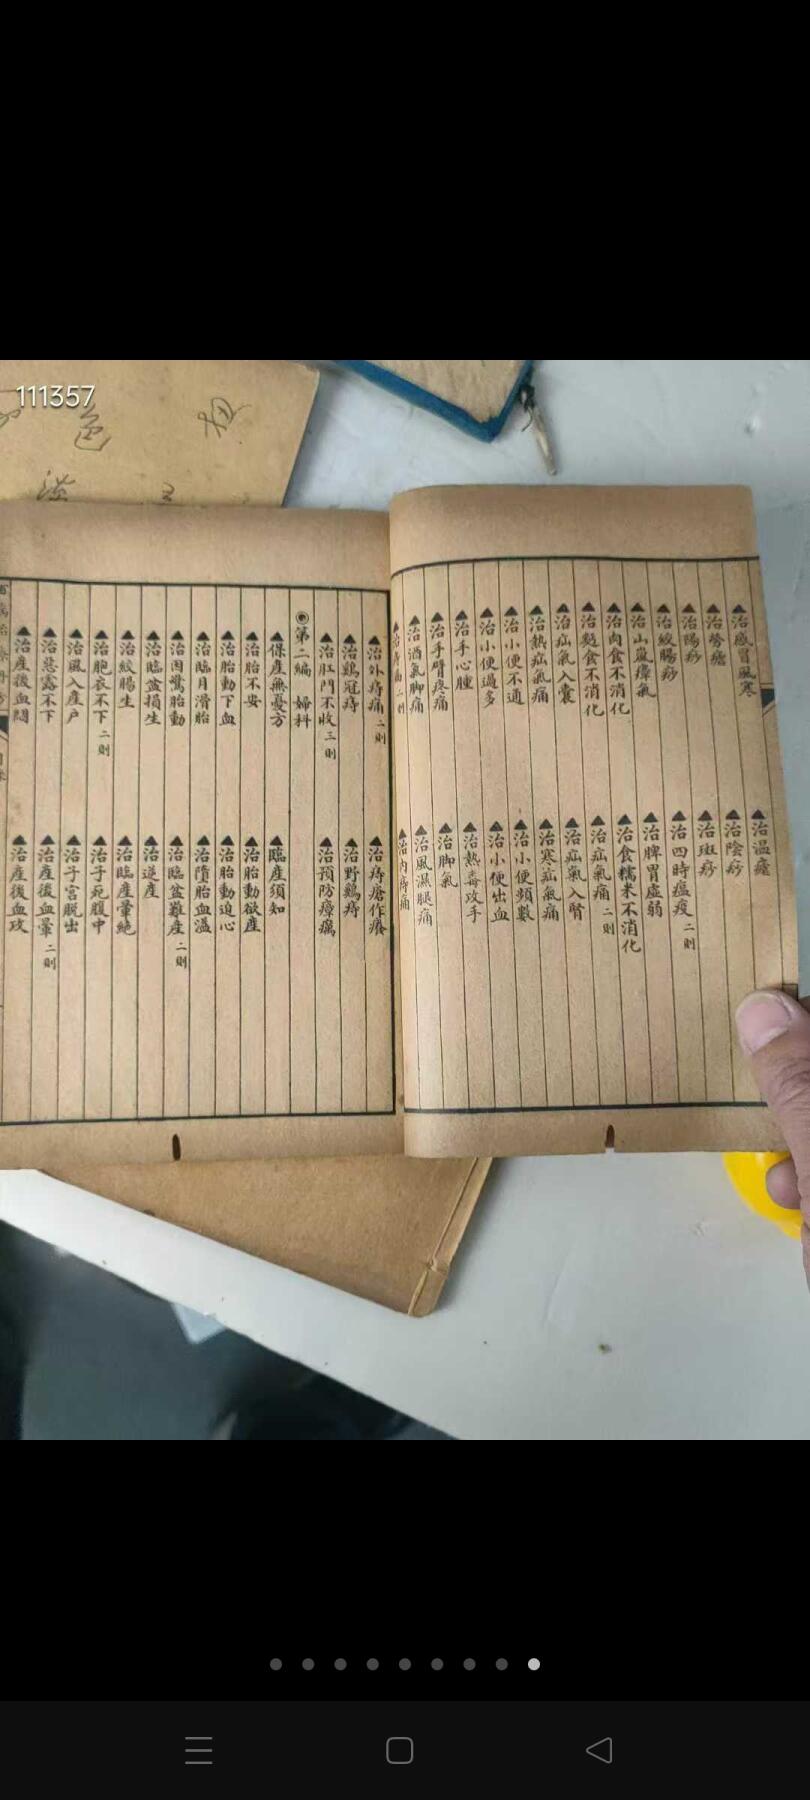 111357
▲治感冒風寒
▲治溫瘧
▲治勞瘧
▲治陰痧
▲治陽痧
▲治斑痧
▲治絞腸痧
▲治四時瘟疫二則
▲治山嵐瘴氣
▲治脾胃虛弱
▲治肉食不消化
▲治食糯米不消化
▲治麪食不消化
▲治疝氣痛二則
▲治疝氣入囊
▲治疝氣入腎
▲治熱疝氣痛
▲治寒疝氣痛
▲治小便不通
▲治小便頻數
▲治小便過多
▲治小便出血
▲治手心腫
▲治熱毒攻手
▲治手臂疼痛
▲治脚氣
▲治酒氣脚痛
▲治風濕腿痛
▲治痔痛二則
▲治內痔痛
▲治外痔痛二則
▲治痔瘡作癢
▲治鷄冠痔
▲治野鷄痔
▲治肛門不收三則
▲治預防瘴癘
◉第二編 婦科
▲保產無憂方
▲臨產須知
▲治胎不安
▲治胎動欲產
▲治胎動下血
▲治胎動迫心
▲治臨月滑胎
▲治墮胎血溢
▲治因驚胎動
▲治臨盆難產二則
▲治臨盆損生
▲治逆產
▲治絞腸生
▲治臨產暈絕
▲治胞衣不下二則
▲治子死腹中
▲治風入產户
▲治子宮脫出
▲治惡露不下
▲治產後血暈二則
▲治產後血悶
▲治產後血攻